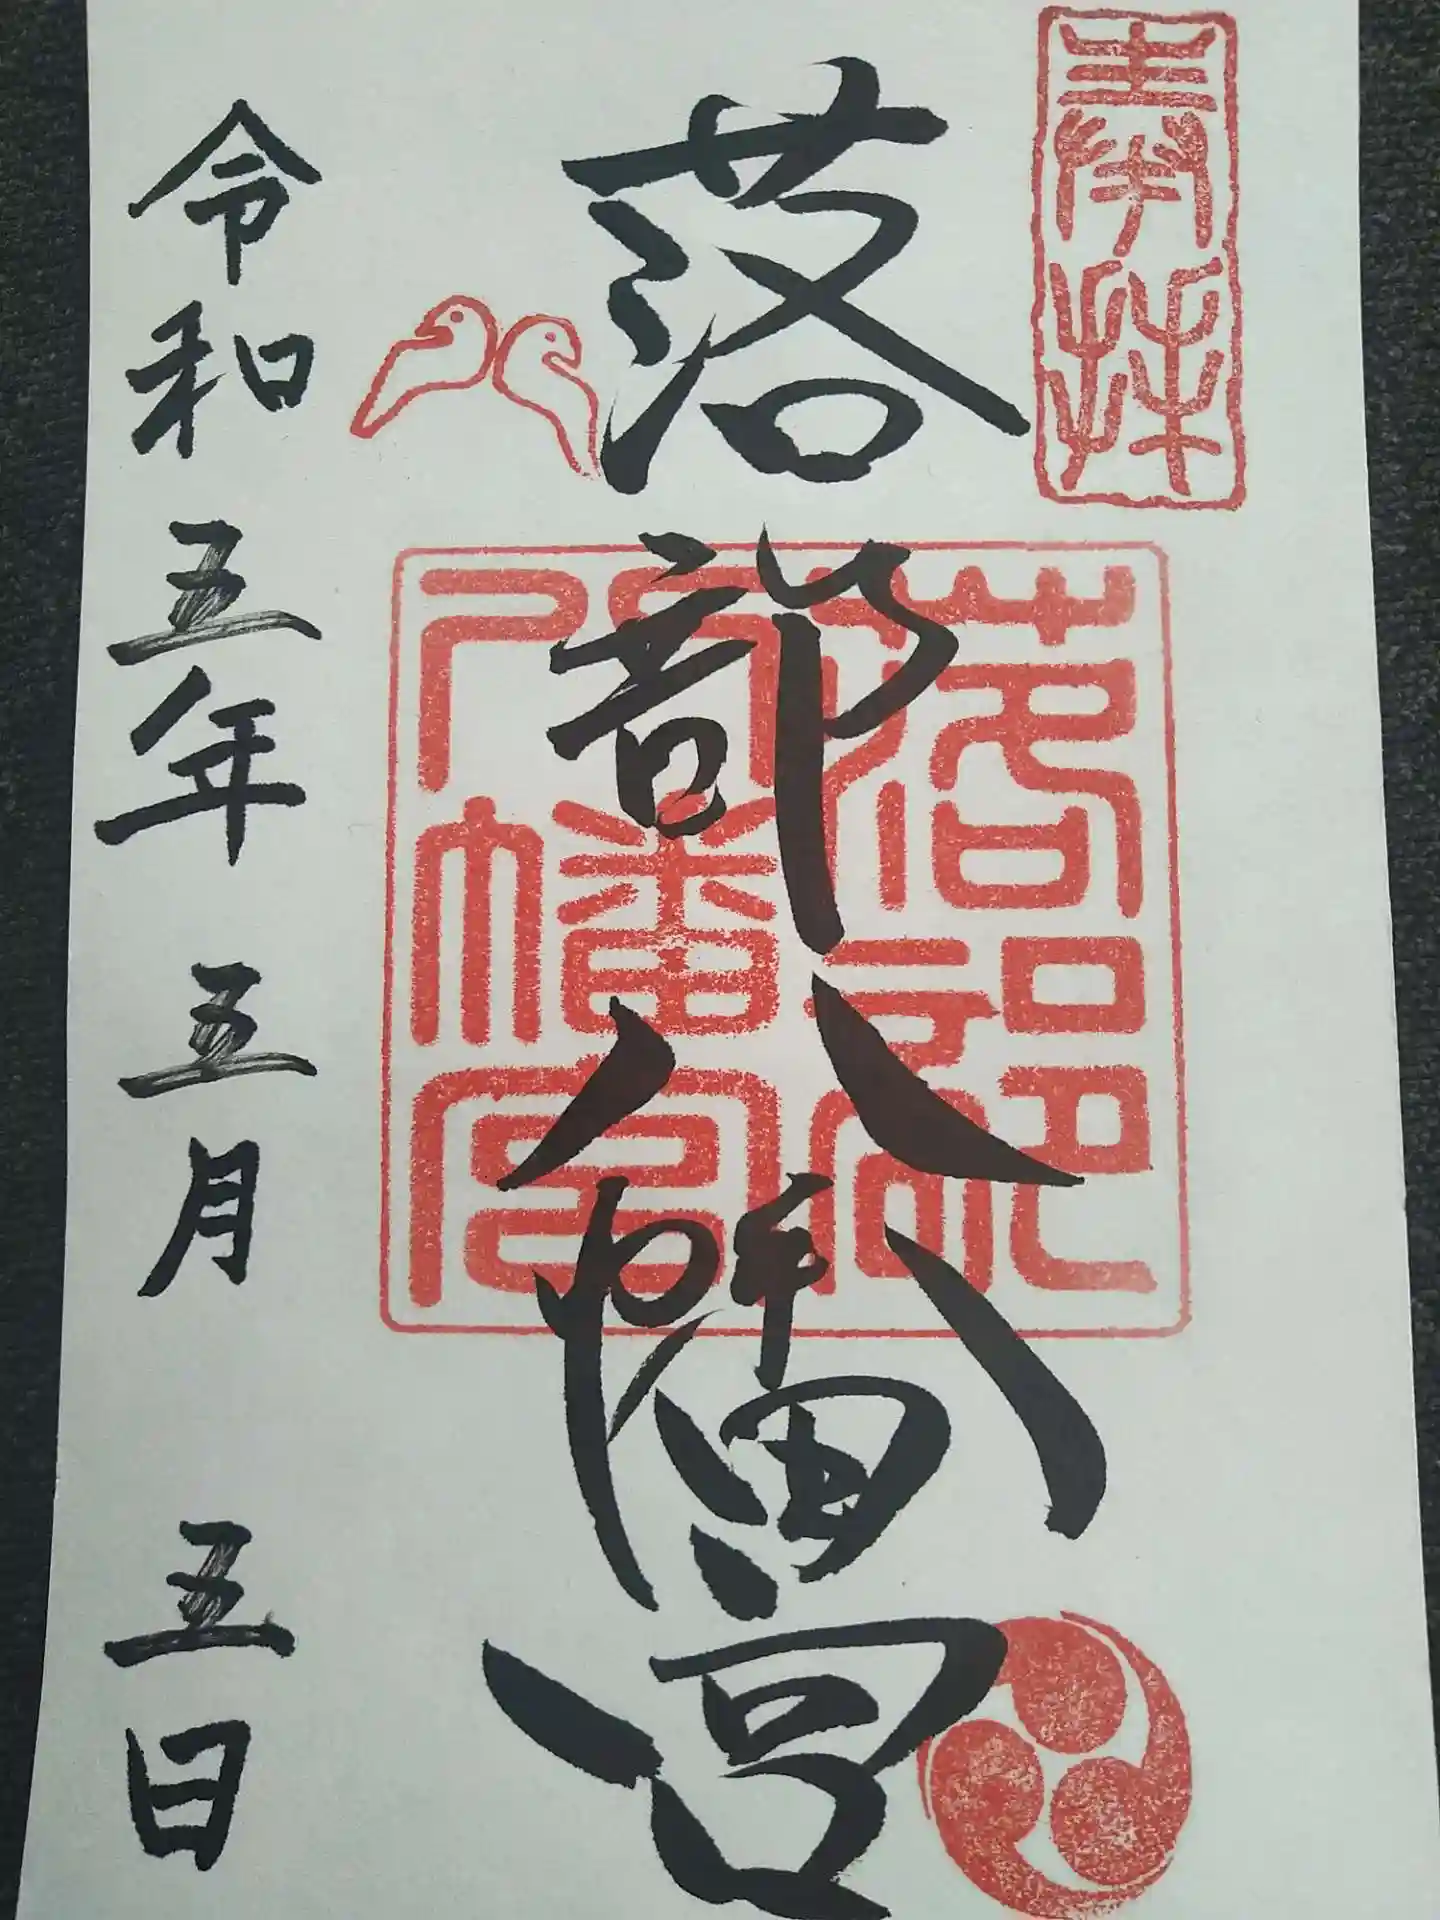 奉拝
落部八幡宮
落部八幡宮印
令和五年五月五日